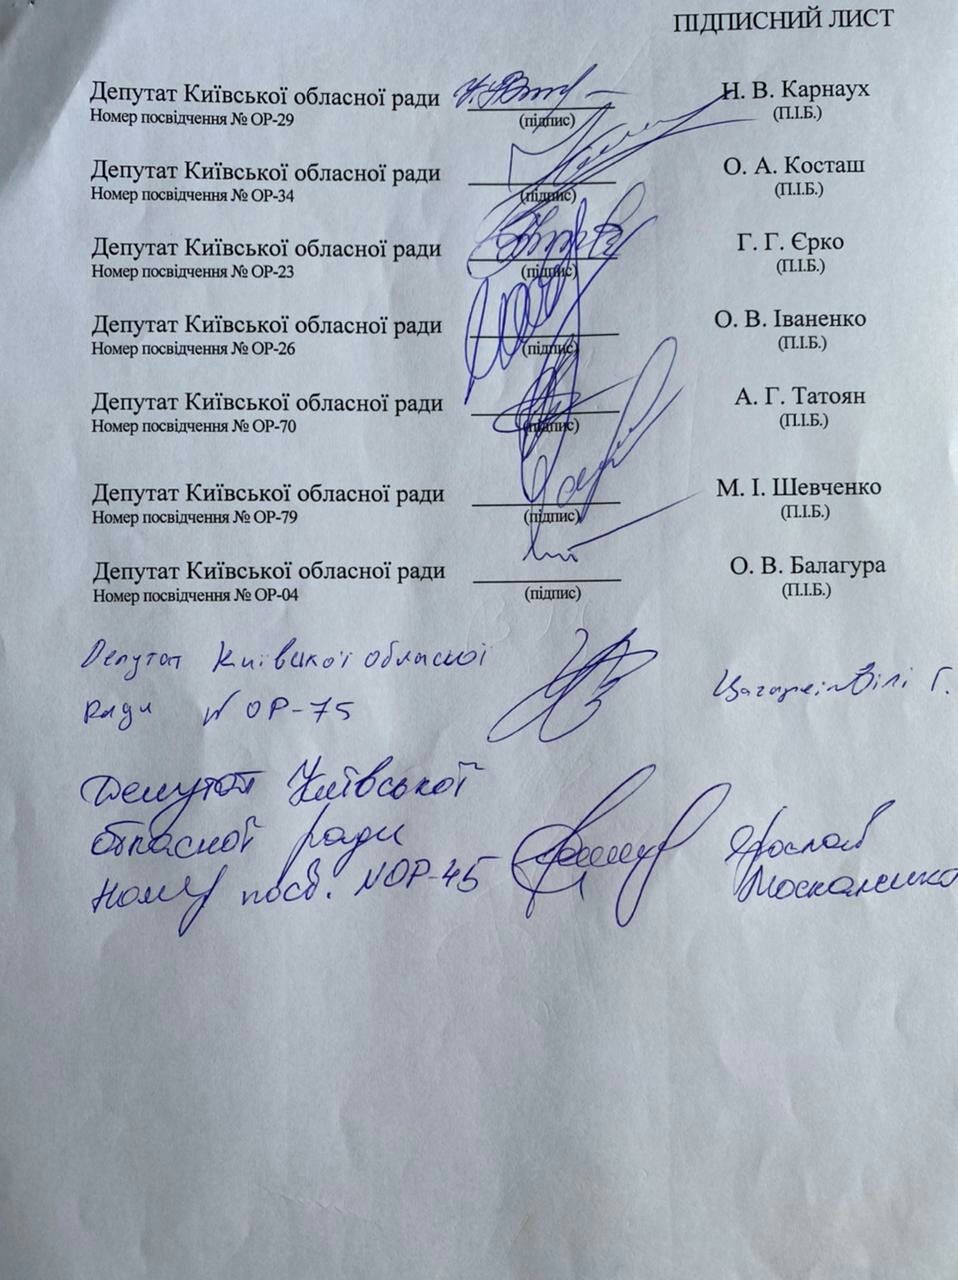 ПІДПИСНИЙ ЛИСТ
Депутат Київської обласної ради Н. В. Карнаух
Номер посвідчення № ОР-29 (підпис) (П.І.Б.)
Депутат Київської обласної ради О. А. Косташ
Номер посвідчення № ОР-34 (підпис) (П.І.Б.)
Депутат Київської обласної ради Г. Г. Єрко
Номер посвідчення № ОР-23 (підпис) (П.І.Б.)
Депутат Київської обласної ради О. В. Іваненко
Номер посвідчення № ОР-26 (підпис) (П.І.Б.)
Депутат Київської обласної ради А. Г. Татоян
Номер посвідчення № ОР-70 (підпис) (П.І.Б.)
Депутат Київської обласної ради М. І. Шевченко
Номер посвідчення № ОР-79 (підпис) (П.І.Б.)
Депутат Київської обласної ради О. В. Балагура
Номер посвідчення № ОР-04 (підпис) (П.І.Б.)
Депутат Київської обласної
ради № ОР-75 Г.
Депутат Київської
обласної ради Ярослав
Номер посв. № ОР-45 Москаленко